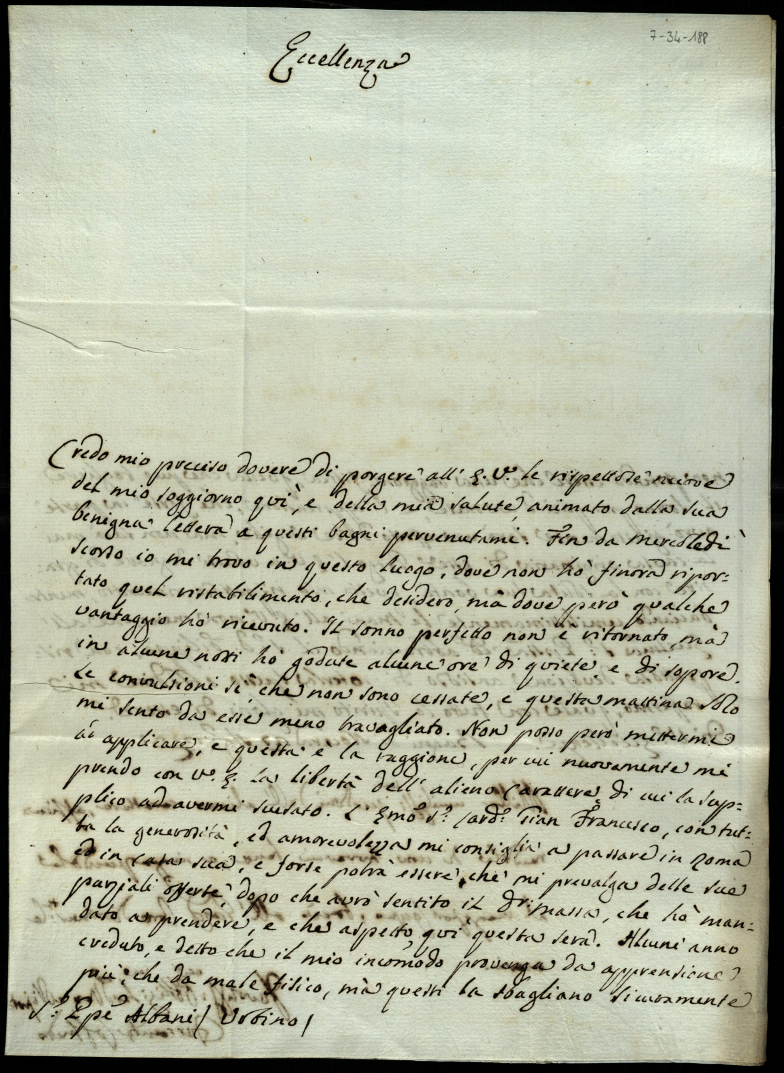 7-34-188
Eccellenza
Credo mio preciso dovere di porgere all' E. V. le rispettose nuove
del mio soggiorno quì, e della mia salute, animato dalla sua
benigna lettera a questi bagni pervenutami. Fin da mercoledì
scorso io mi trovo in questo luogo, dove non hò finora ripor=
tato quel ristabilimento, che desidero, mà dove però qualche
vantaggio hò ricevuto. Il sonno perfetto non è ritornato, mà
in alcune notti hò godute alcune ore di quiete, e di sopore.
Le convulsioni sì, che non sono cessate, e questa mattina solo
mi sento da esse meno travagliato. Non posso però mettermi
ad applicare, e questa è la raggione, per cui nuovamente mi
prendo con V. E. la libertà dell' alieno carattere di cui la sup=
plico ad avermi scusato. L' Emo Sr. Card. Gian Francesco, con tut=
ta la generosità, ed amorevolezza mi consiglia a passare in Roma
ed in casa sua, e forse potrà essere, che mi prevalga delle sue
parziali offerte, dopo che avrò sentito il Dr. Massa, che hò man=
dato a prendere, e che aspetto quì questa sera. Alcuni anno
creduto, e detto che il mio incomodo provenga da apprensione
più, che da male fisico, mà questi la sbagliano sicuramente
Sr. Ppe Albani / Urbino /